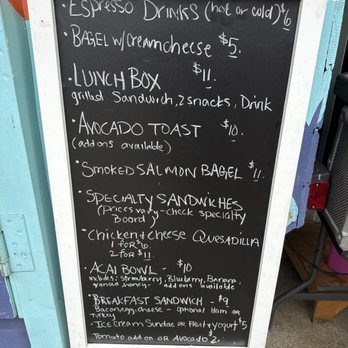 Espresso Drinks (hot or cold) $6
• Bagel w/creamcheese $5.
• Lunch Box $11.
grilled Sandwich, 2 snacks, Drink
• Avocado Toast $10.
(add ons available)
• Smoked Salmon Bagel $11.
• Specialty Sandwiches
(prices vary - check specialty
Board)
• Chicken & cheese Quesadilla
1 for $10
2 for $11.
• Acai Bowl - $10
includes: strawberry, Blueberry, Banana,
granola, honey - add ons available
• Breakfast Sandwich - $9
Bacon, egg, cheese - optional Ham or
Turkey
• Ice Cream Sundae or Fruit & yogurt $5
Tomato add on or Avocado $2.